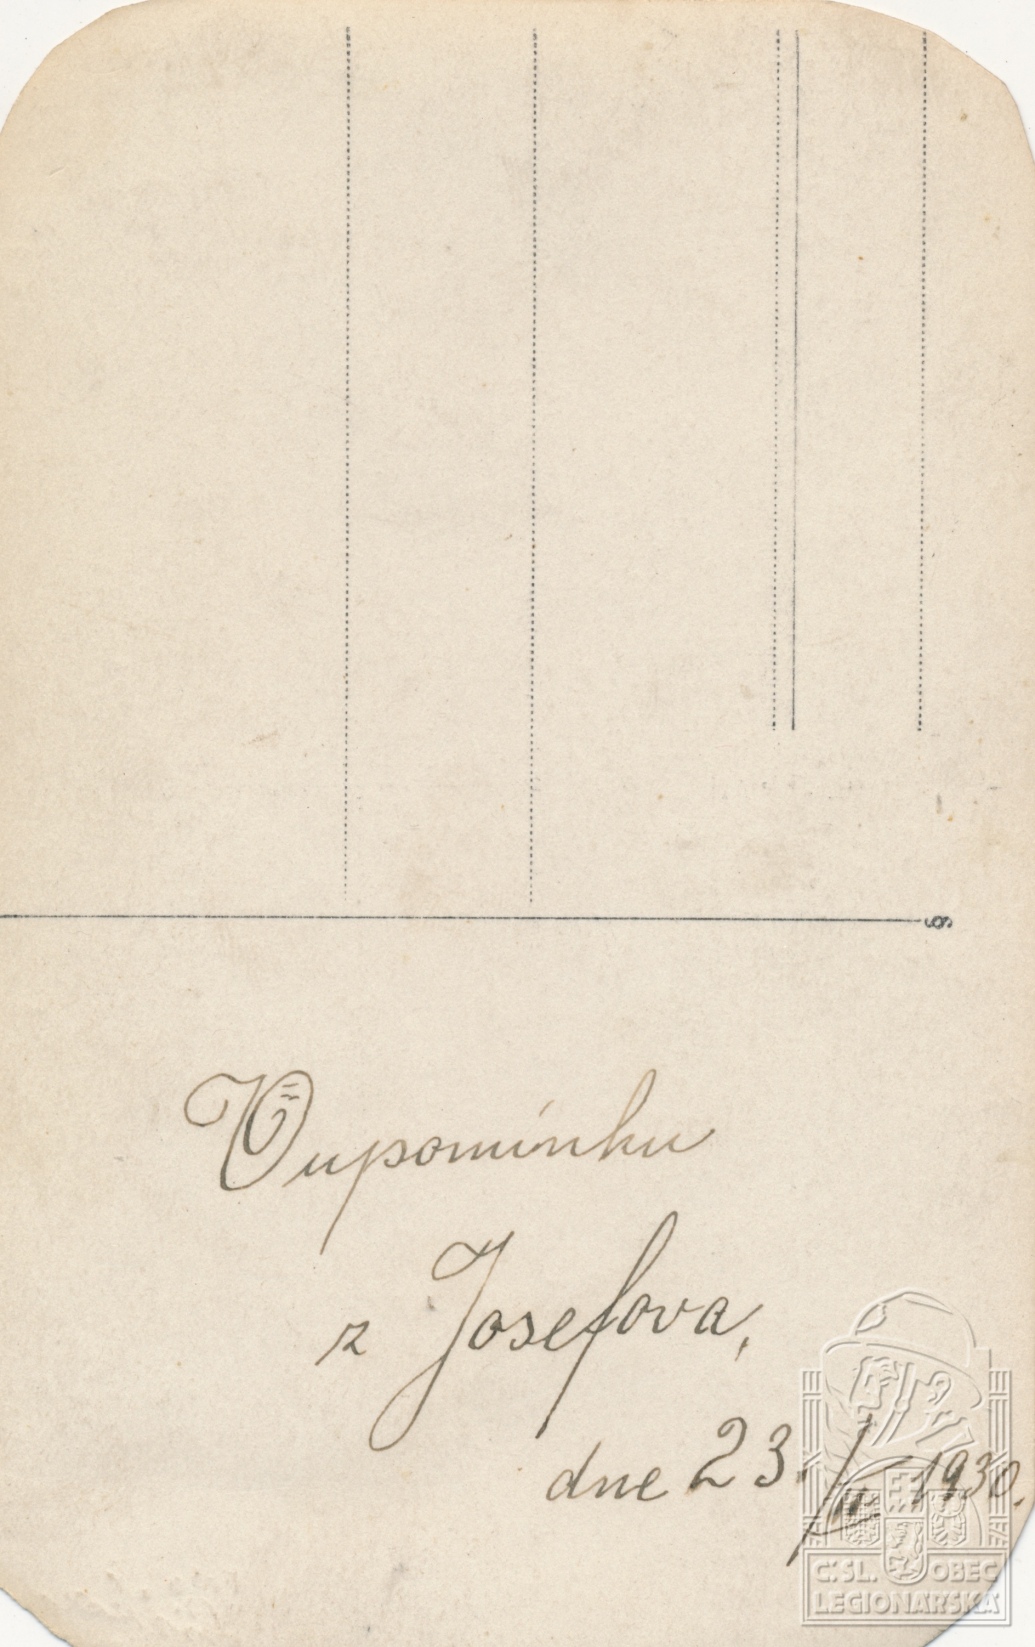 Vupomínku
z Josefova,
dne 23./II 1930.
Č.SL. OBEC
LEGIONÁŘSKÁ